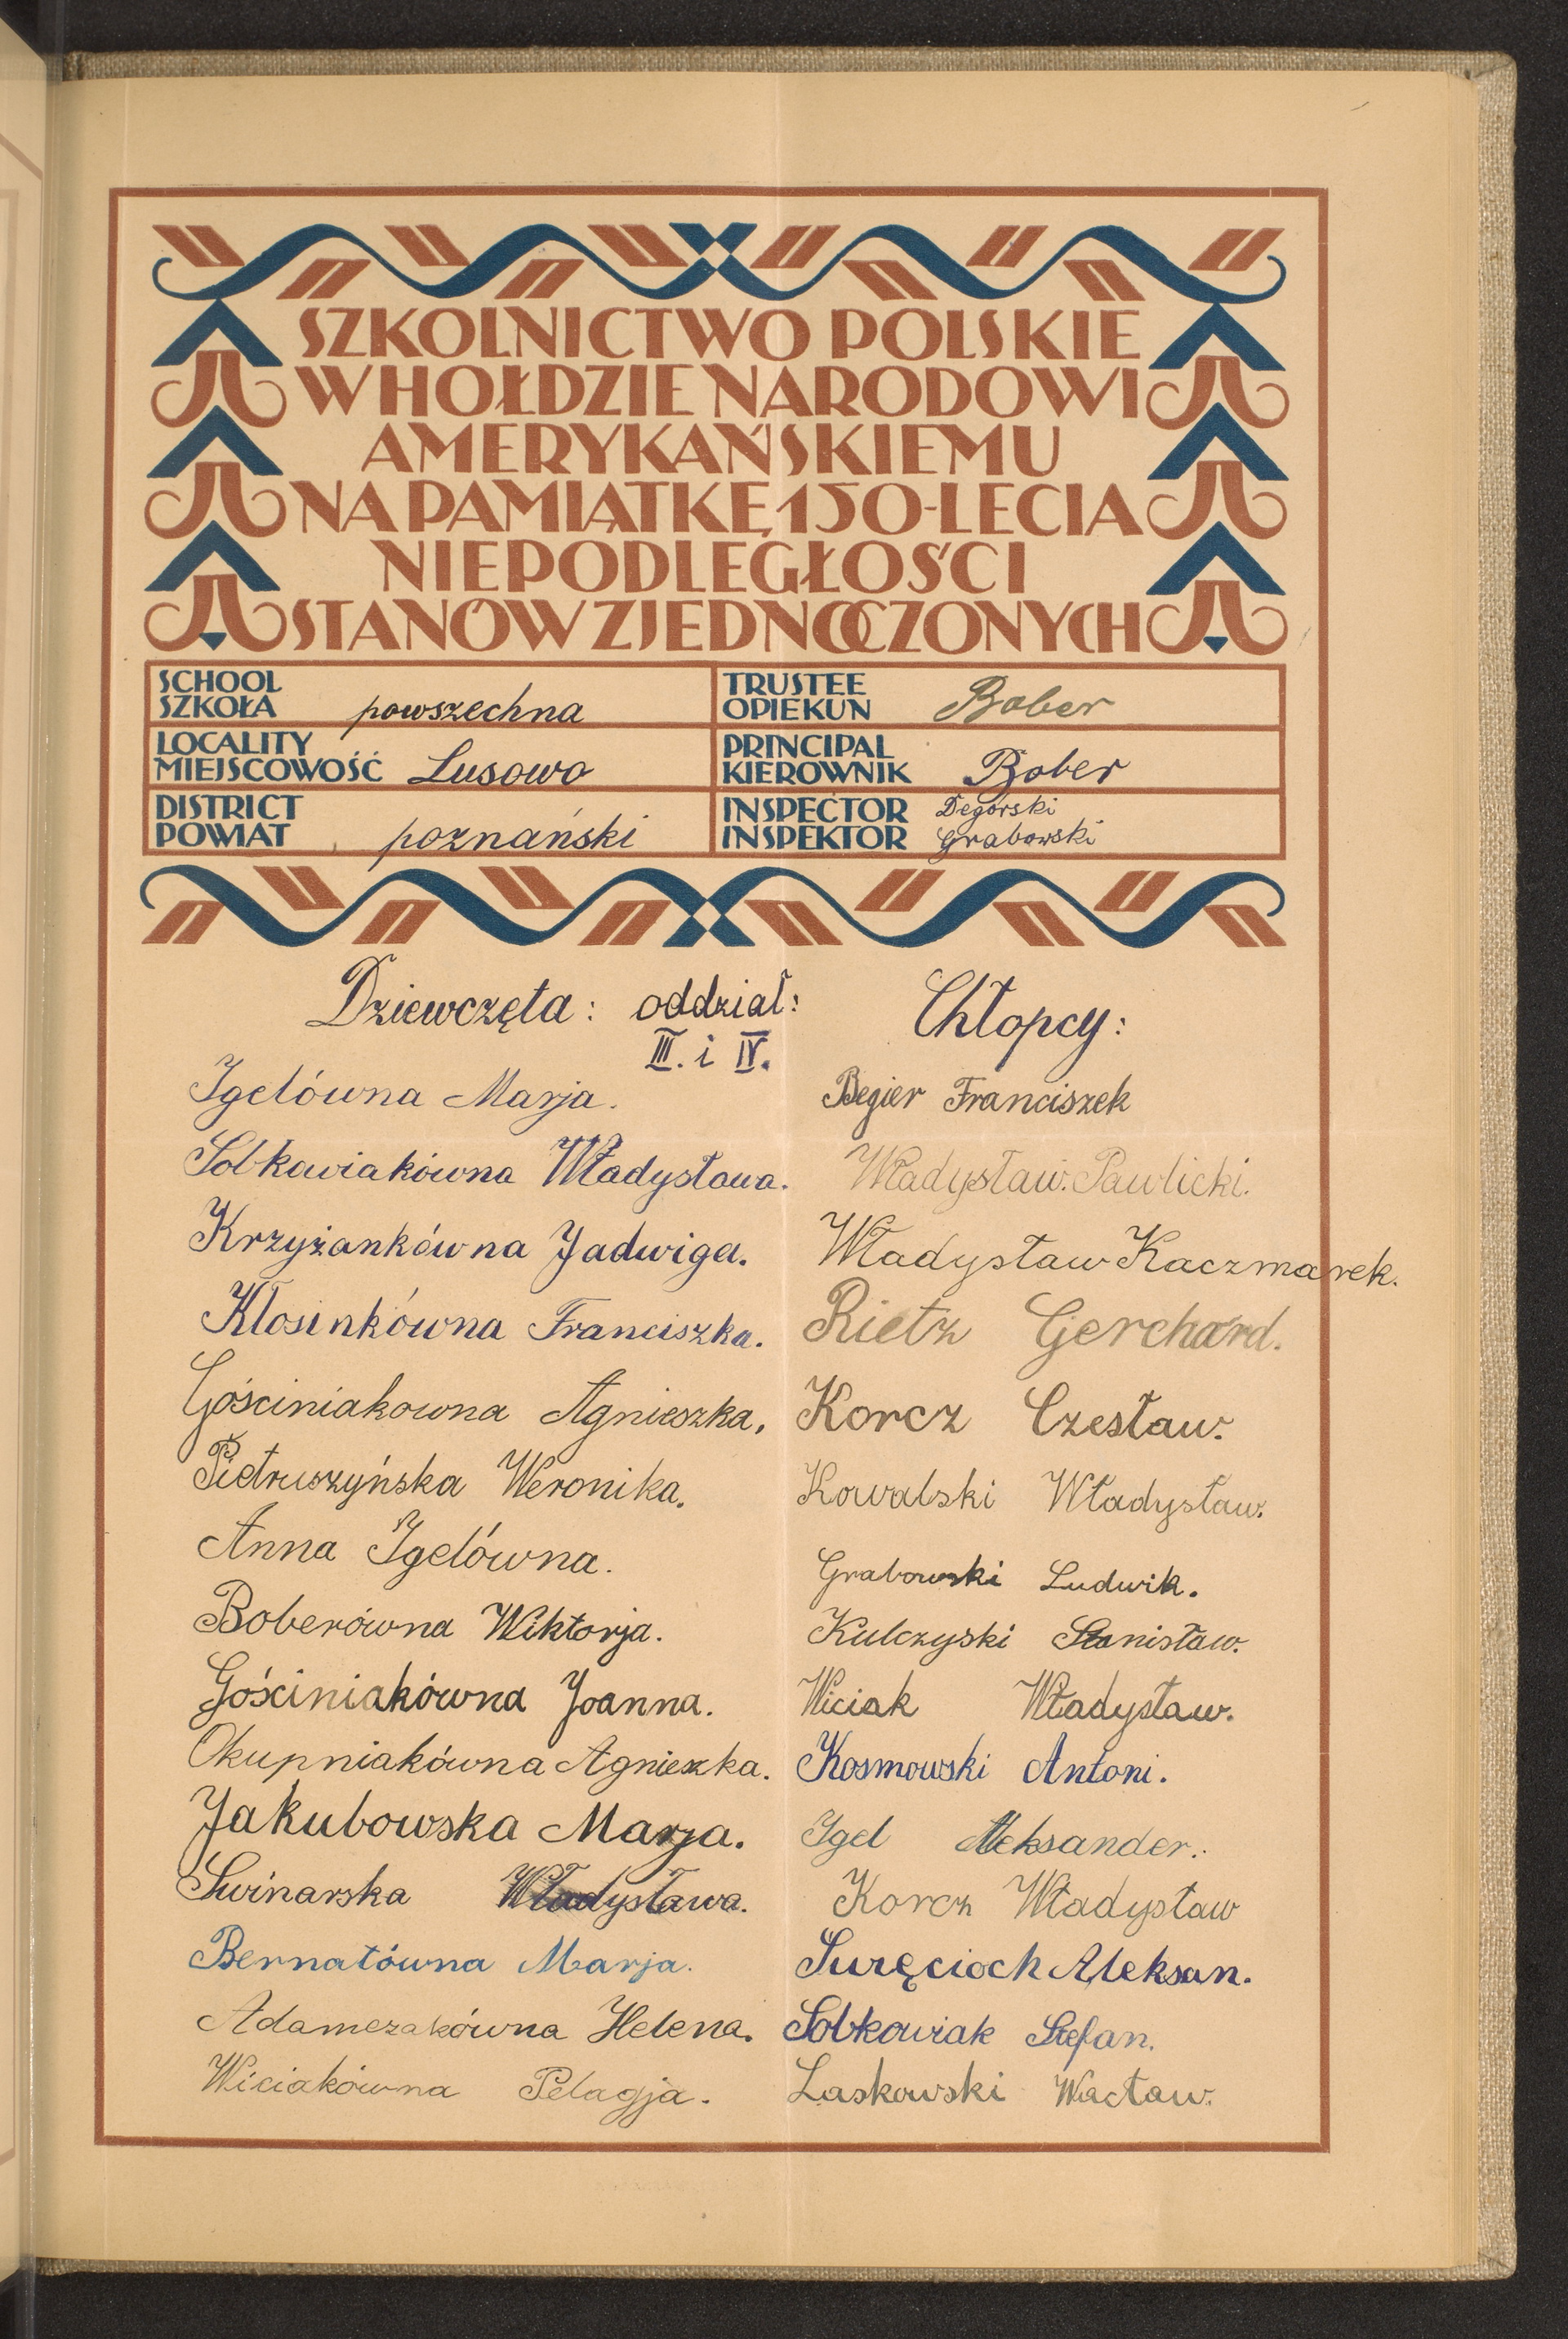 SZKOLNICTWO POLSKIE
W HOŁDZIE NARODOWI
AMERYKAŃSKIEMU
NA PAMIĄTKĘ 150-LECIA
NIEPODLEGŁOŚCI
STANÓW ZJEDNOCZONYCH
SCHOOL
SZKOŁA powszechna
TRUSTEE
OPIEKUN Bober
LOCALITY
MIEJSCOWOŚĆ Lusowo
PRINCIPAL
KIEROWNIK Bober
DISTRICT
POWIAT poznański
INSPECTOR Degórski
INSPEKTOR Grabowski
Dziewczęta: oddział:
III. i IV.
Igelówna Marja.
Sobkowiakówna Władysława.
Krzyżankówna Jadwiga.
Kłosinkówna Franciszka.
Gościniakowna Agnieszka,
Pietruszyńska Weronika.
Anna Igelówna.
Boberówna Wiktorja.
Gościniakówna Joanna.
Okupniakówna Agnieszka.
Jakubowska Marja.
Swinarska Władysława.
Bernatówna Marja.
Adamczakówna Helena.
Wiciakówna Pelagja.
Chłopcy:
Begier Franciszek
Władysław. Pawlicki.
Władysław Kaczmarek.
Rietz Gerchard.
Korcz Czesław.
Kowalski Władysław.
Grabowski Ludwik.
Kulczyski Stanisław.
Wiciak Władysław.
Kosmowski Antoni.
Igel Aleksander.
Korcz Władysław
Swręcioch Aleksan.
Sobkowiak Stefan.
Laskowski Wacław.